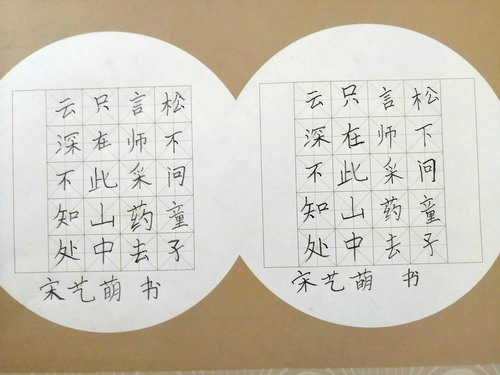 松不问童子
言师采药去
只在此山中
云深不知处
宋艺萌 书
松下问童子
言师采药去
只在此山中
云深不知处
宋艺萌 书